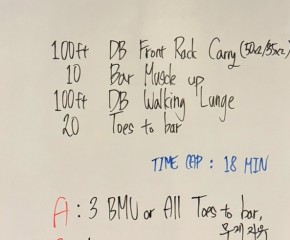 100ft DB Front Rack Carry (50x2/35x2)
10 Bar Muscle up
100ft DB Walking Lunge
20 Toes to bar
TIME CAP : 18 MIN
A : 3 BMU or All Toes to bar,